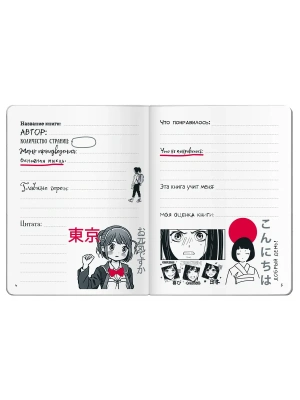 Название книги:
АВТОР:
КОЛИЧЕСТВО СТРАНИЦ:
Жанр произведения:
Основная мысль:
Главные герои:
Цитата:
東京
お元気ですか
Что понравилось:
Что не понравилось:
Эта книга учит меня
МОЯ ОЦЕНКА КНИГИ:
こんにちは
ДОБРЫЙ ДЕНЬ!
日本